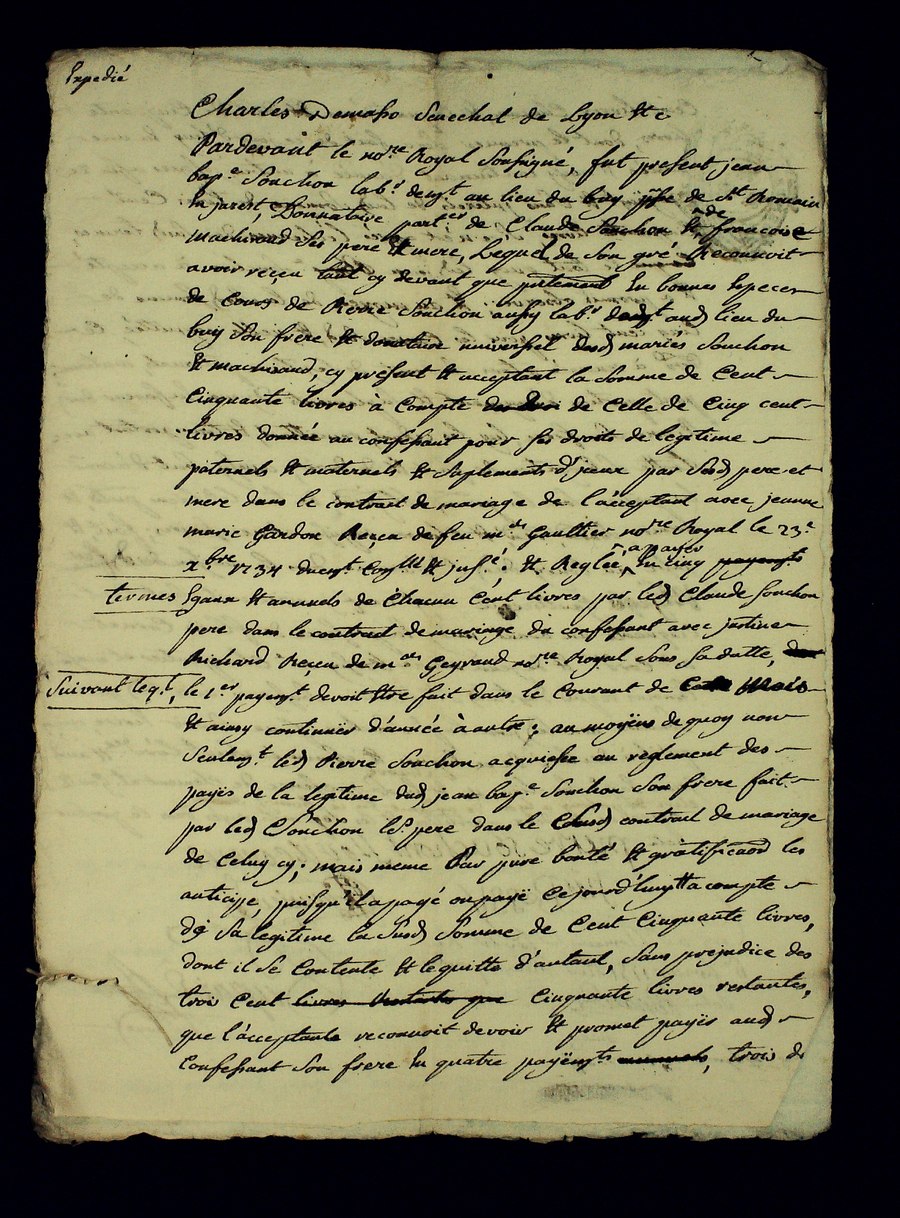 Expedié
Charles Demaso Senechal de Lyon &c
Pardevant le nore Royal Soussigné, fut present jean
bape Souchon labr demt au lieu du buy psse de St Romain
En jarest, Donnataire parter de Claude Souchon & de francoise
machiraud ses pere & mere, Lequel de son gré Reconnoit
avoir reçeu tant cy devant que En bonnes Especes
de Cours de Pierre Souchon aussy labr demt aud lieu du
buy Son frere & donataire universel desd mariés Souchon
& machiraud, cy présent & acceptant la Somme de Cent
Cinquante livres à Compte de Celle de Cinq cent
livres donnée au confessant pour ses droits de legitime
paternels & maternels & suplements d'yceux par Sesd pere et
mere dans le contract de mariage de l'acceptant avec jeanne
marie Gardon Reçeu de feu me Gaultier nore Royal le 23e
xbre 1734 duemt Conllé & insé; & Reglée a payer En cinq payemts
termes Egaux & annuels de Chacun Cent livres par led Claude Souchon
pere dans le contract de mariage du confessant avec justine
Richard Reçeu de me Geyraud nore Royal Sous Sa datte,
Suivant leql, le 1er payemt devoit Etre fait dans le Courant de Mois
& ainsy continuër d'année à autre; au moÿens de quoy non
Seulemt led Pierre Souchon acquiesse au reglement des
payes de la legitime dud jean bape Souchon Son frere fait
par led Souchon le pere dans le Susd contract de mariage
de Celuy cy; mais meme Par pure bonté & gratificaon les
anticipe, puisqu'il a payé ou payë Cejourd'huy a compte
de Sa legitime la Susd Somme de Cent Cinquante livres,
dont il Se Contente & le quitte d'autant, Sans prejudice des
trois Cent livres Cinquante livres restantes,
que l'acceptante reconnoit devoir & promet payër aud
Confessant Son frere En quatre payëmts annuels, trois de